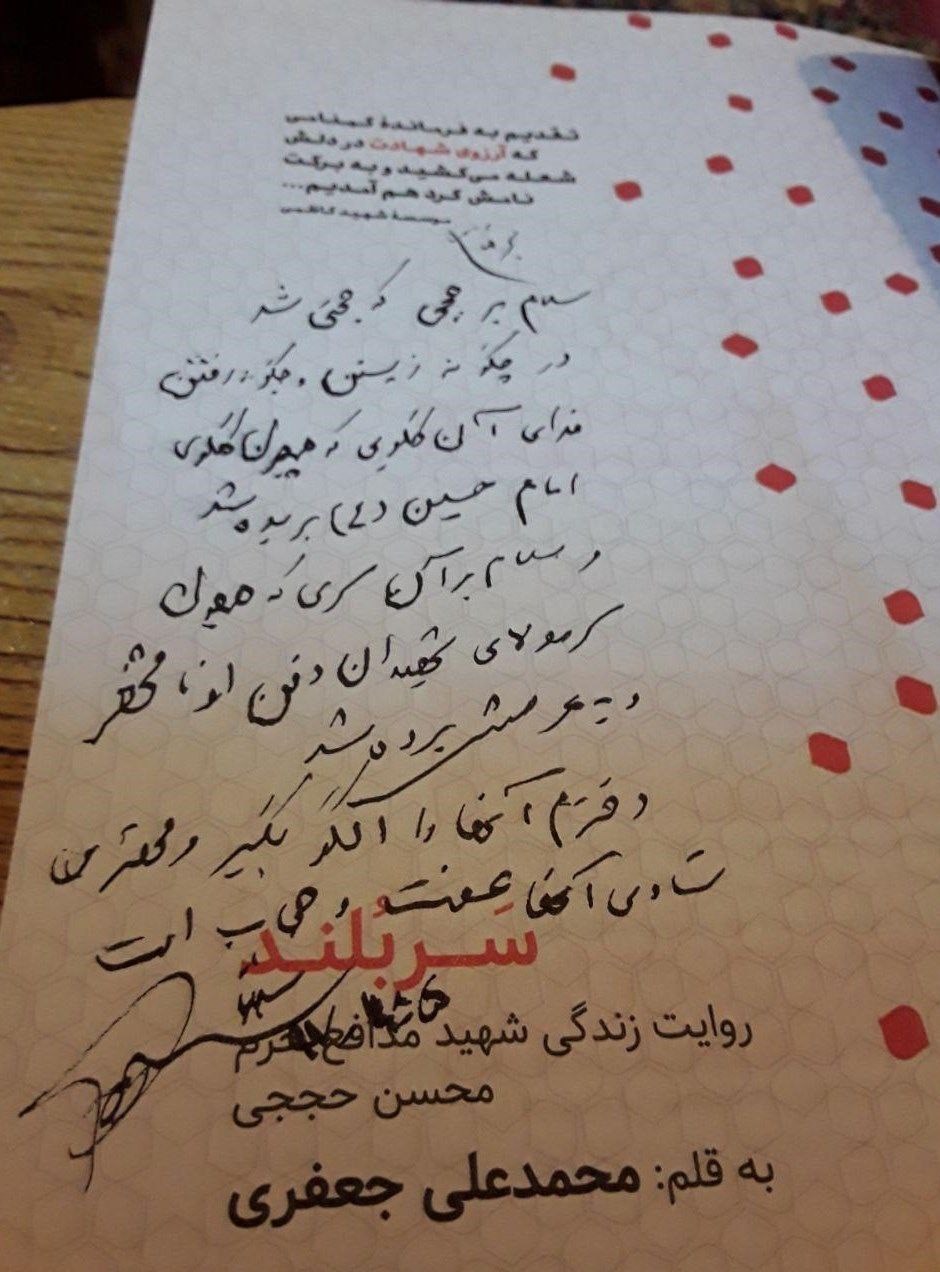 تقدیم به فرماندهٔ گمنامی
که آرزوی شهادت در دلش
شعله می‌کشید و به برکت
نامش گرد هم آمدیم...
موسسهٔ شهید کاظمی
سلام بر حججی که حجتی شد
در چگونه زیستن و چگونه رفتن
فدای آن گلویی که همچون گلوی
امام حسین (ع) بریده شد
و سلام بر آن سری که همچون
سر مولای شهیدان دفن او نا
و به عرش برده شد
دخترم آنها را الگو بگیر و مهمترین
آنها عفت و حجاب است
سربلند
روایت زندگی شهید مدافع حرم
محسن حججی
به قلم: محمدعلی جعفری